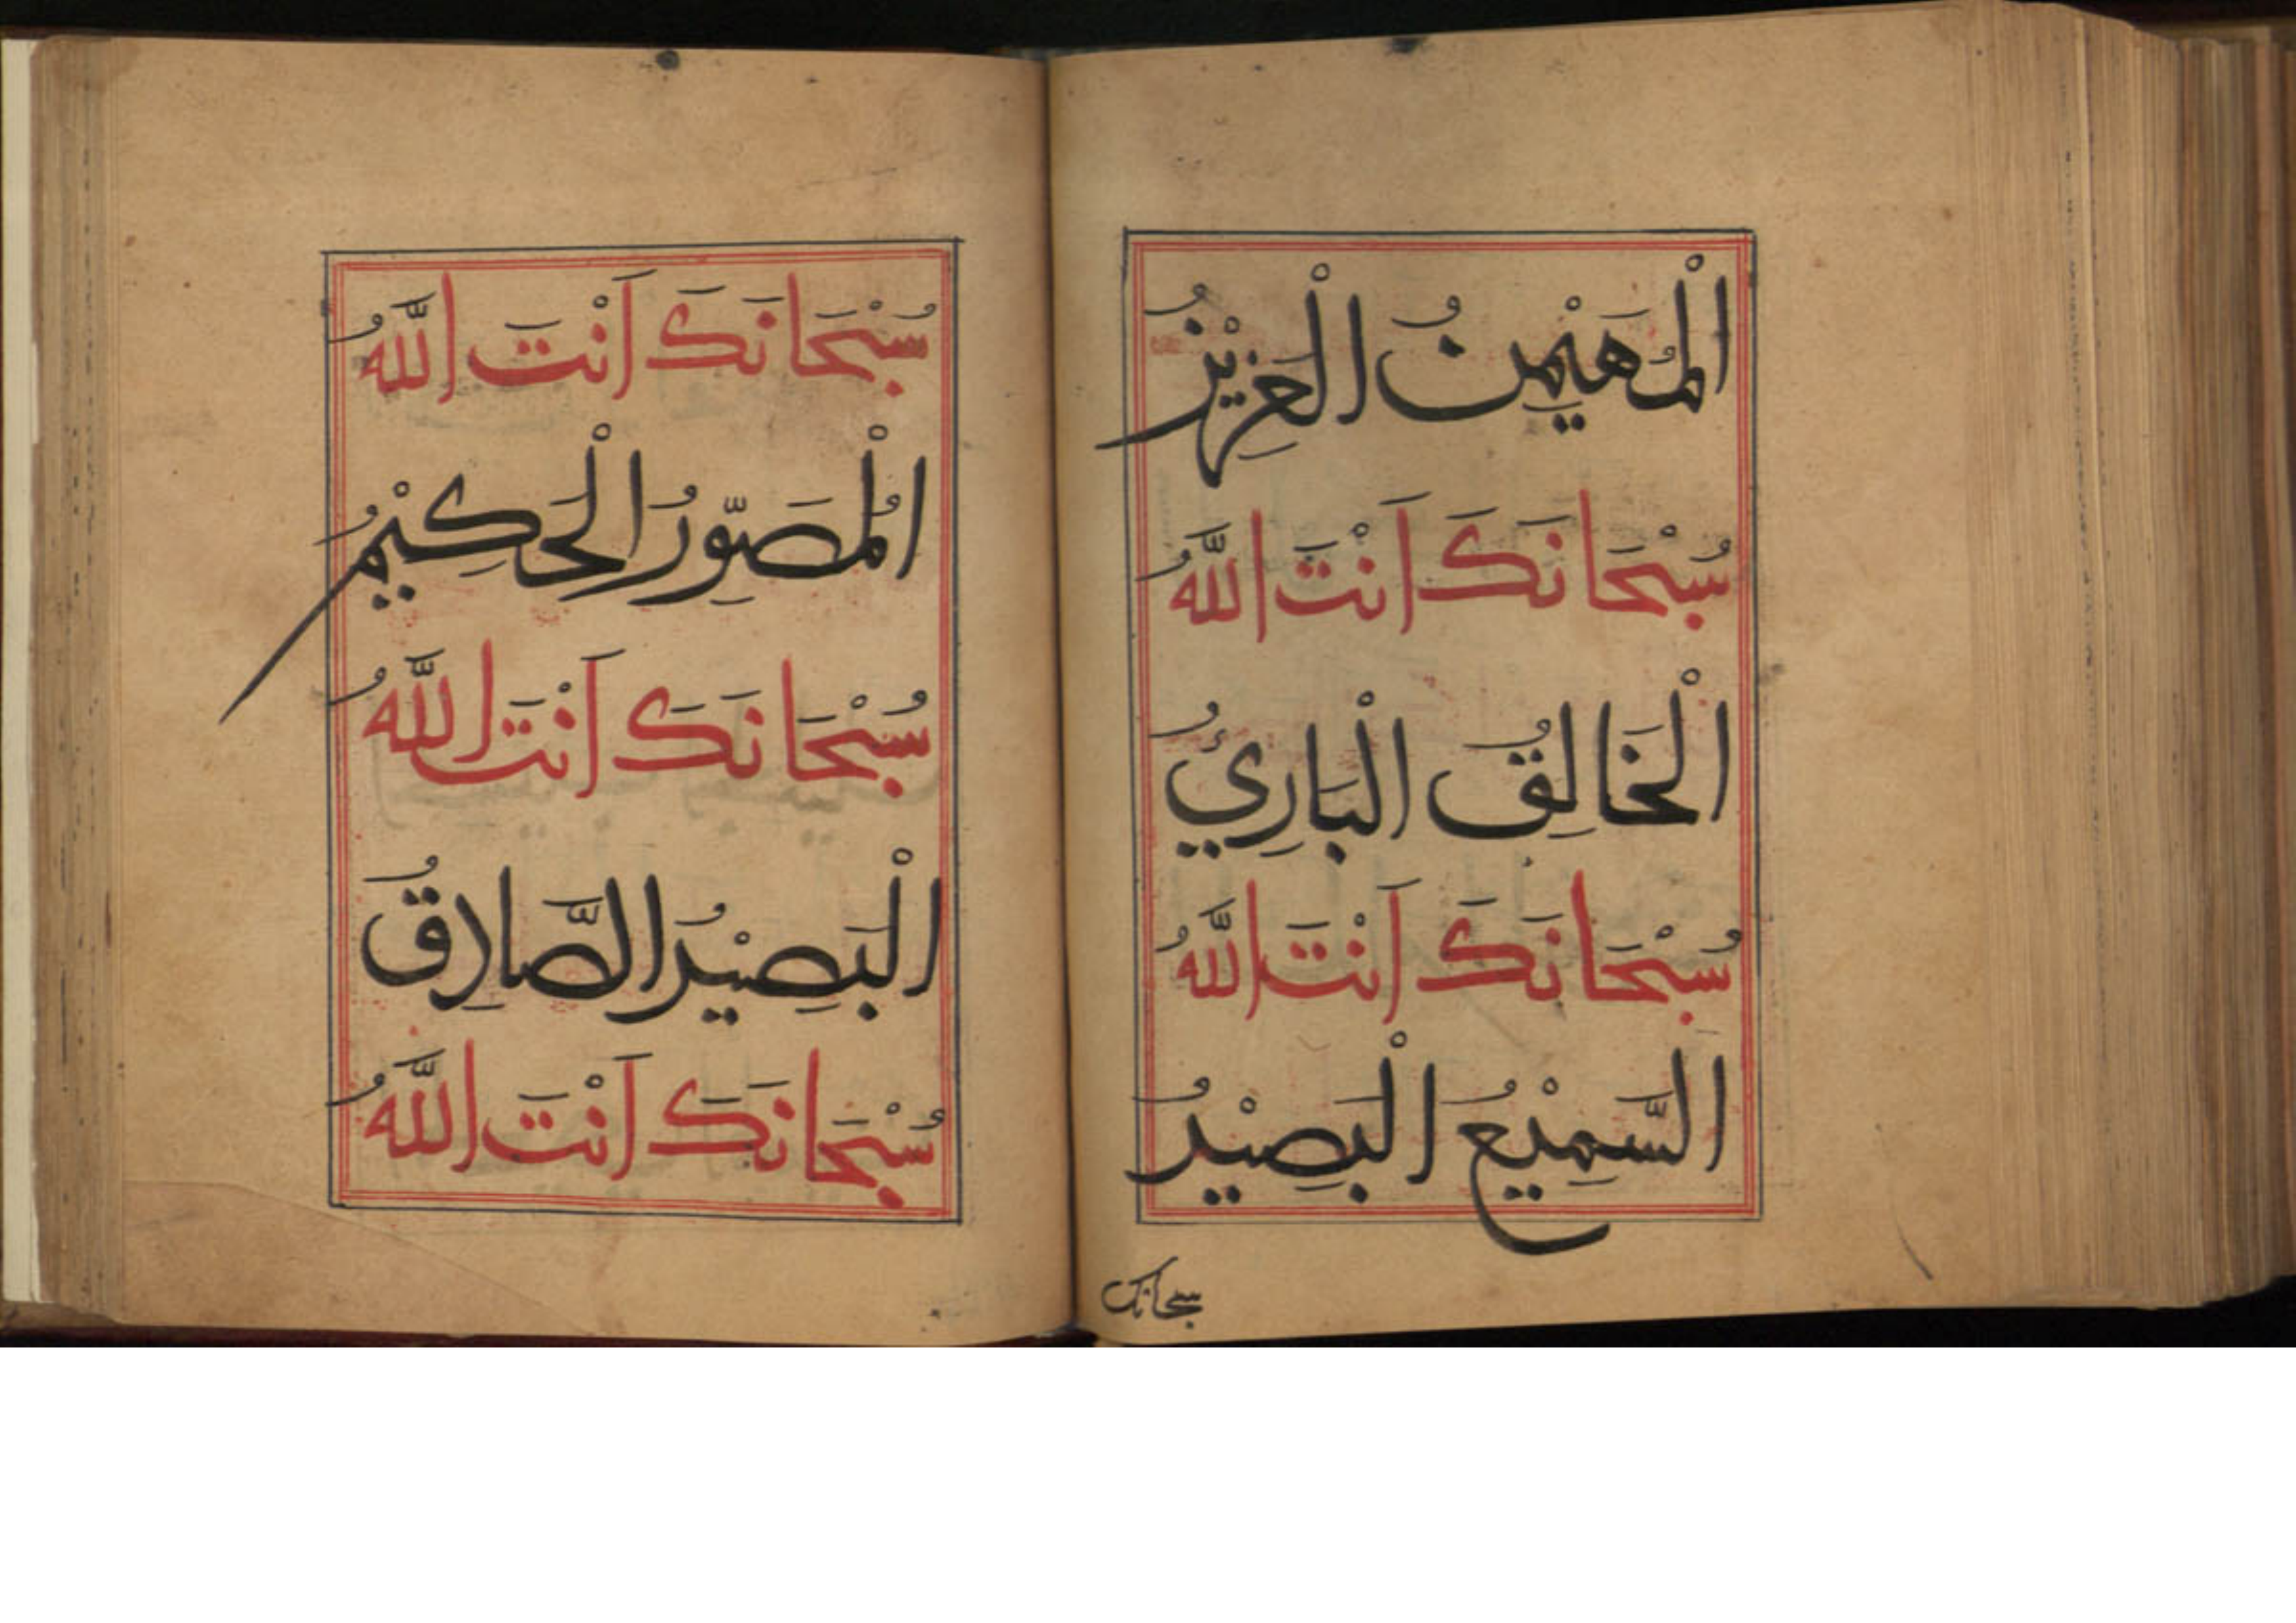 الْمُهَيْمِنُ الْعَزِيْزُ
سُبْحَانَكَ اَنْتَ اللَّهُ
الْخَالِقُ الْبَارِئُ
سُبْحَانَكَ اَنْتَ اللَّهُ
السَّمِيْعُ الْبَصِيْرُ
سبحانک
سُبْحَانَكَ اَنْتَ اللَّهُ
الْمُصَوِّرُ الْحَكِيْمُ
سُبْحَانَكَ اَنْتَ اللَّهُ
الْبَصِيْرُ الصَّادِقُ
سُبْحَانَكَ اَنْتَ اللَّهُ